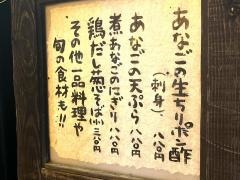 あなごの生ちりポン酢
(刺身) 八八〇円
あなごの天ぷら 八八〇円
煮あなごのにぎり 八八〇円
鶏だし葱そば(小) 三三〇円
その他一品料理や
旬の食材も!!